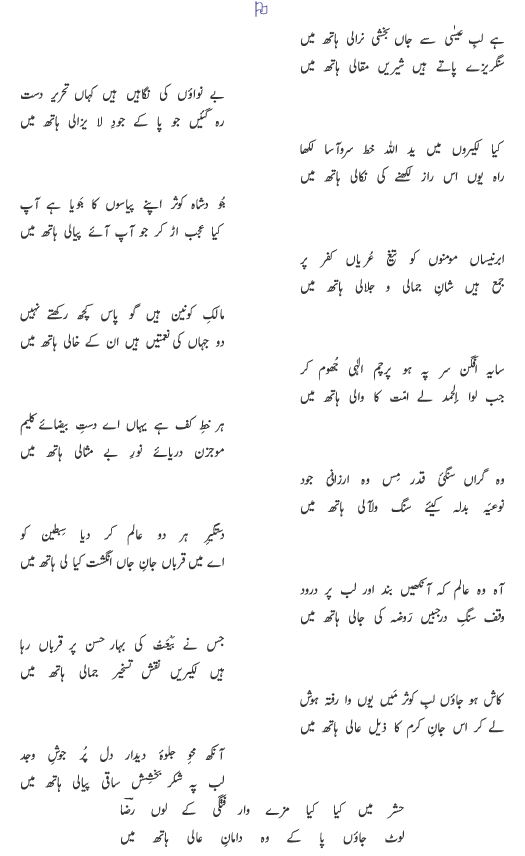 ہے لبِ عیسٰی سے جاں بخشی نرالی ہاتھ میں
سنگریزے پاتے ہیں شیریں مقالی ہاتھ میں
بے نواؤں کی نگاہیں ہیں کہاں تحریرِ دست
رہ گئیں جو پا کے جودِ لا یزالی ہاتھ میں
کیا لکیروں میں ید اللہ خط سروآسا لکھا
راہ یوں اس راز لکھنے کی نکالی ہاتھ میں
جُودِ شاہِ کوثر اپنے پیاسوں کا جُویا ہے آپ
کیا عجب اڑ کر جو آپ آئے پیالی ہاتھ میں
ابرِ نیساں مومنوں کو تیغِ عُریاں کفر پر
جمع ہیں شانِ جمالی و جلالی ہاتھ میں
مالکِ کونین ہیں گو پاس کچھ رکھتے نہیں
دو جہاں کی نعمتیں ہیں ان کے خالی ہاتھ میں
سایہ افگن سر پہ ہو پرچم الٰہی جُھوم کر
جب لوا الحمد لے امّت کا والی ہاتھ میں
ہر خطِ کف ہے یہاں اے دستِ بیضائے کلیم
موجزن دریائے نورِ بے مثالی ہاتھ میں
وہ گراں سنگیٔ قدرِ مِس وہ ارزانیٔ جود
نوعیّہ بدلہ کیئے سنگ ولآلی ہاتھ میں
دستگیرِ ہر دو عالم کر دیا سِبطین کو
اے میں قرباں جانِ جاں انگشت کیا لی ہاتھ میں
آہ وہ عالم کہ آنکھیں بند اور لب پر درود
وقف سنگِ درجبیں رَوضہ کی جالی ہاتھ میں
جس نے بیْعَت کی بہار حسن پر قرباں رہا
ہیں لکیریں نقش تسخیر جمالی ہاتھ میں
کاش ہو جاؤں لبِ کوثر مَیں یوں وا رفتہ ہوش
لے کر اس جانِ کرم کا ذیل عالی ہاتھ میں
آنکھ محوِ جلوۂ دیدار دل پُر جوشِ وجد
لب پہ شکرِ بخشِشِ ساقی پیالی ہاتھ میں
حشر میں کیا کیا مزے وارفتگی کے لوں رضؔا
لوٹ جاؤں پا کے وہ دامانِ عالی ہاتھ میں